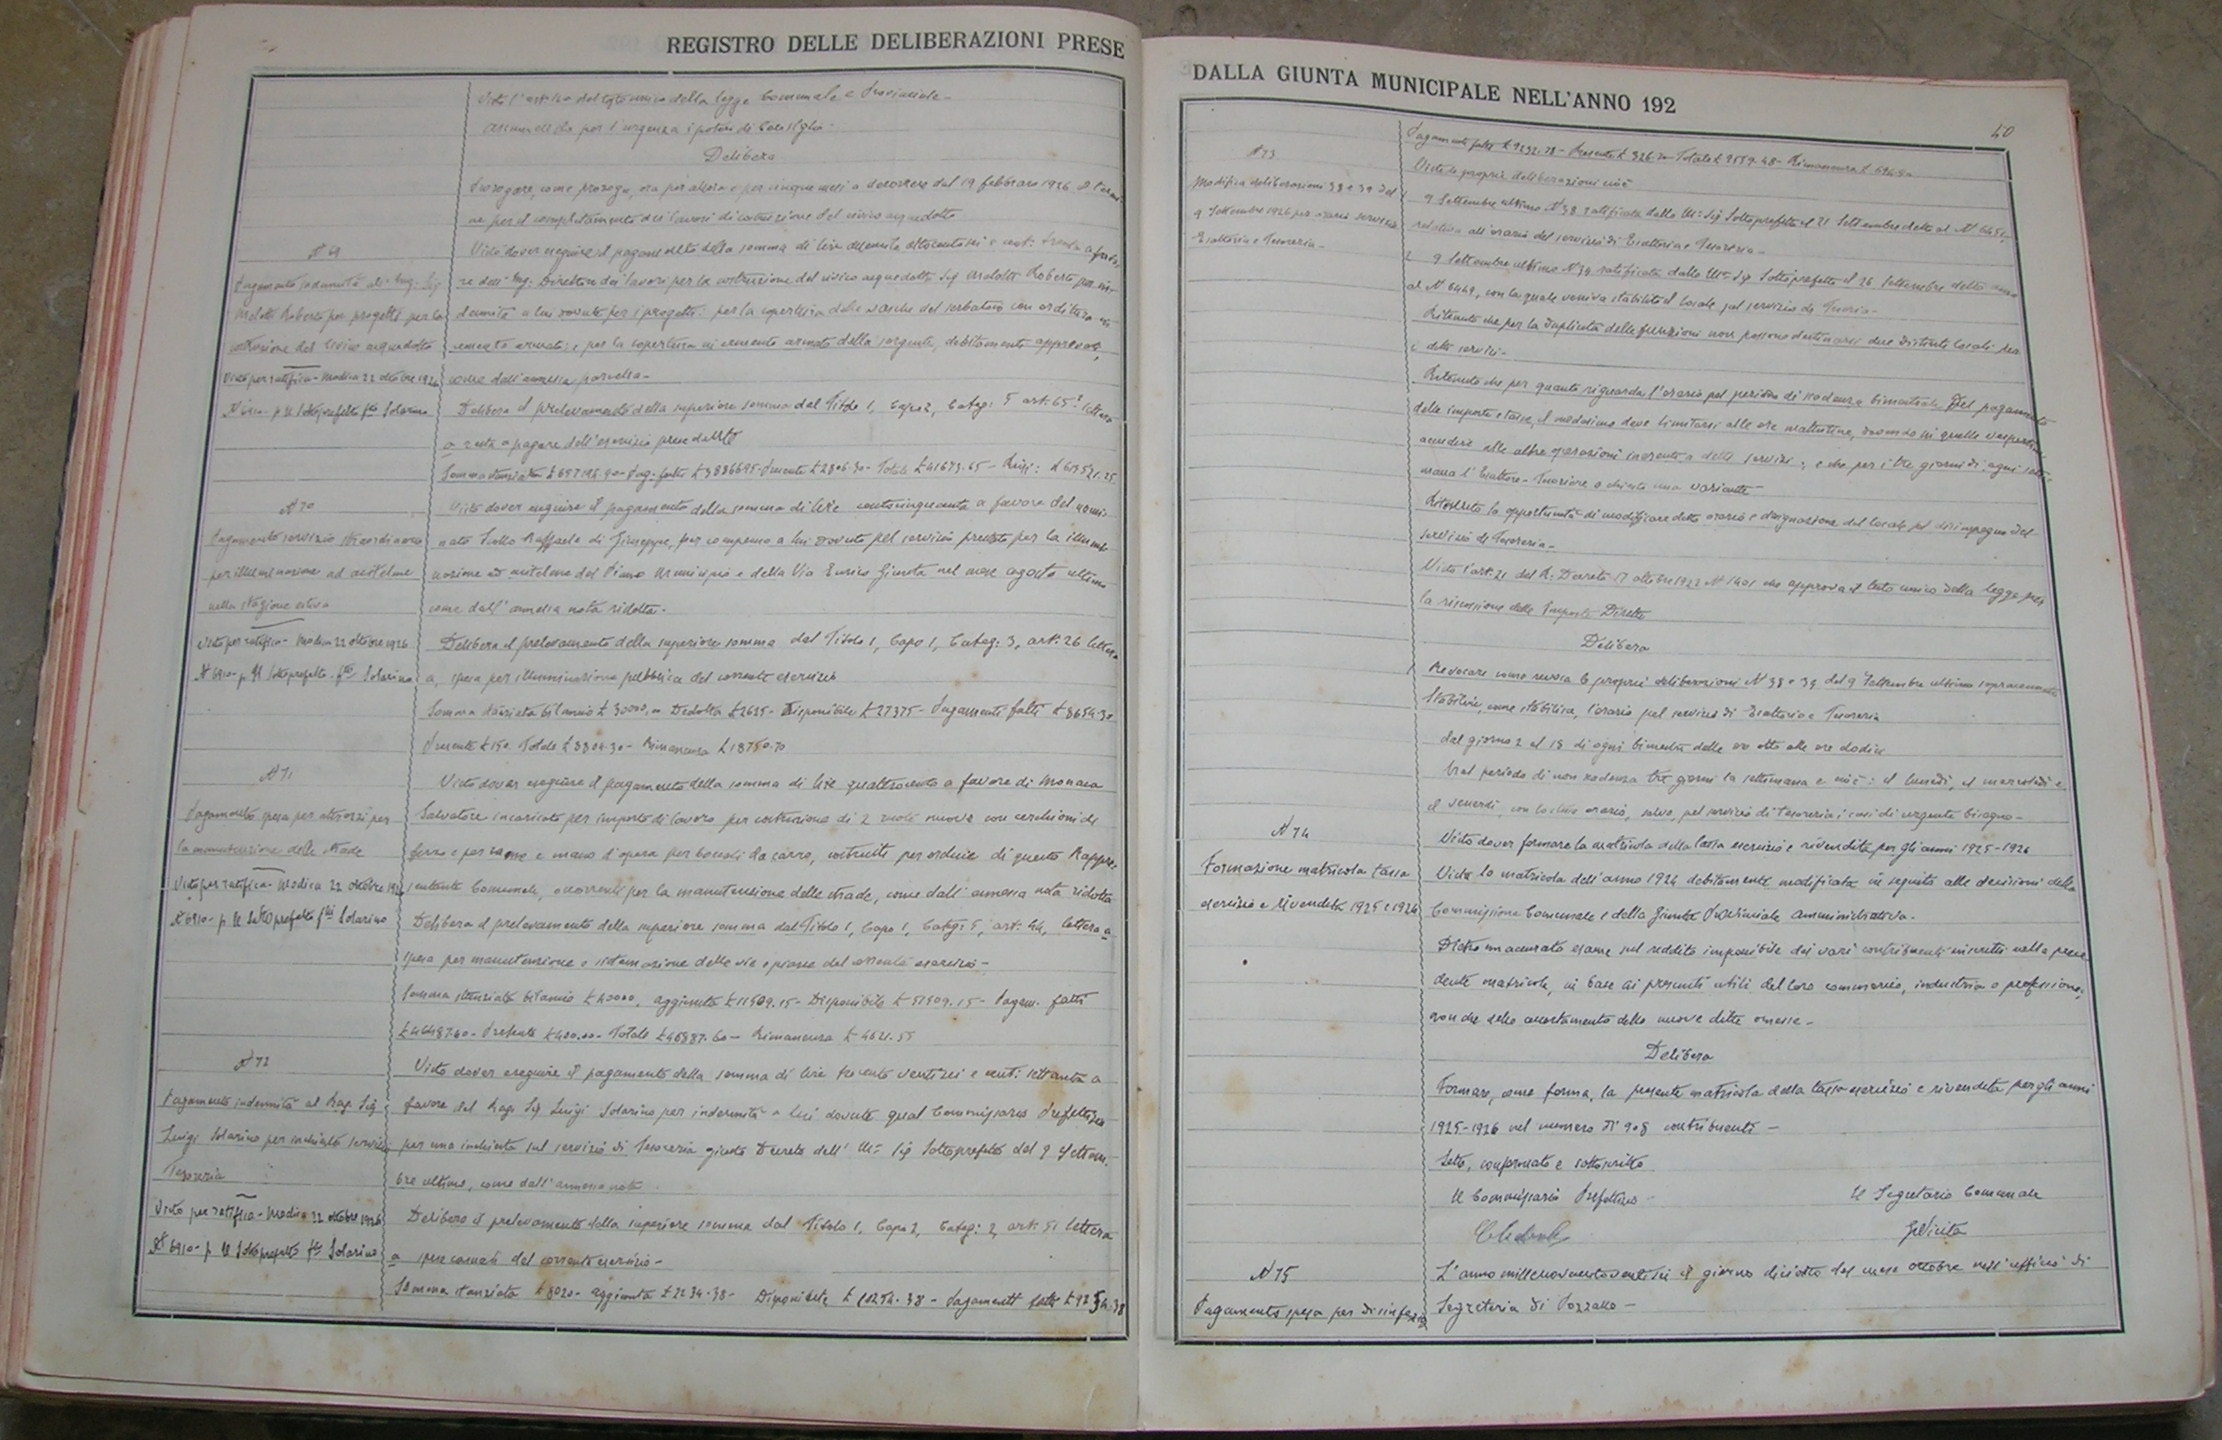 REGISTRO DELLE DELIBERAZIONI PRESE
Visto l'art. 140 del testo unico della legge Comunale e Provinciale -
assumendo per l'urgenza i poteri di Consiglio -
Delibera
Prorogare, come proroga, ora per allora e per cinque mesi a decorrere dal 19 febbraio 1926 il termi
ne per il completamento dei lavori di costruzione del civico acquedotto
N 69
Pagamento indennità all'Ing. Sig
Roberto per progetti per la
costruzione del civico acquedotto
Visto per ratifica - Modica 22 ottobre 1926
p. Il Sottoprefetto fto Solarino
Visto dover eseguire il pagamento della somma di lire duemila ottocentosei e cent. trenta a favo
re dell'Ing. Direttore dei lavori per la costruzione del civico acquedotto Sig. Roberto per in
dennità a lui dovute per i progetti: per la copertura delle vasche del serbatoio con orditura in
cemento armato; e per la copertura in cemento armato della sorgente, debitamente approvati,
come dall'annessa parcella -
Delibera il prelevamento della superiore somma dal Titolo I, Capo 2, Categ: 5 art. 65 lettera
a resta a pagare dell'esercizio precedente
Pag. fatti £ 38866.95 - Presente £ 2806.30 - Totale £ 41673.65
N 70
Pagamento servizio straordinario
per illuminazione ad acetilene
nella stagione estiva
Visto per ratifica - Modica 22 ottobre 1926
N 6910 - p. Il Sottoprefetto fto Solarino
Visto dover eseguire il pagamento della somma di lire centocinquanta a favore del nomi
nato Raffaele di Giuseppe, per compenso a lui dovuto pel servizio prestato per la illumi
nazione ad acetilene del Piano Municipio e della Via Enrico Giunta nel mese agosto ultimo
come dall'annessa nota ridotta -
Delibera il prelevamento della superiore somma dal Titolo I, Capo I, Categ: 3, art. 26 lettera
a, spesa per illuminazione pubblica del corrente esercizio
Somma stanziata bilancio £ 30000,00 Dedotta £ 2625 - Disponibile £ 27375 - Pagamenti fatti £ 8654.30
Presente £ 150 Totale £ 8804.30 - Rimanenza £ 18570.70
N 71
Pagamento spesa per attrezzi per
la manutenzione delle strade
Visto per ratifica - Modica 22 ottobre 1926
N 6910 - p. Il Sottoprefetto fto Solarino
Visto dover eseguire il pagamento della somma di lire quattrocento a favore di Monaca
Salvatore incaricato per importo di lavoro per costruzione di 2 ruote nuove con cerchioni di
ferro e per e mano d'opera per da carro, costruiti per ordine di questo Rappre
sentante Comunale, occorrenti per la manutenzione delle strade, come dall'annessa nota ridotta
Delibera il prelevamento della superiore somma dal Titolo I, Capo I, Categ: 5, art. 44, lettera a
spesa per manutenzione e sistemazione delle vie e piazze del corrente esercizio -
Somma stanziata bilancio £ 40000, aggiunta £ 11509.15 - Disponibile £ 51509.15 - Pagam. fatti
£ 46487.60 - Presente £ 400.00 - Totale £ 46887.60 - Rimanenza £ 4621.55
N 72
Pagamento indennità al Rag. Sig
Luigi Solarino per inchiesta servizio
Tesoreria
Visto per ratifica - Modica 22 ottobre 1926
N 6910 - p. Il Sottoprefetto fto Solarino
Visto dover eseguire il pagamento della somma di lire trecento ventisei e cent. settanta a
favore del Rag. Sig Luigi Solarino per indennità a lui dovute qual Commissario Prefettizio
per una inchiesta sul servizio di Tesoreria giusto Decreto dell'Ill.mo Sig Sottoprefetto del 9 Settem
bre ultimo, come dall'annessa nota
Delibera il prelevamento della superiore somma dal Titolo I, Capo 2, Categ: 2, art. 51 lettera
a spese casuali del corrente esercizio -
Somma stanziata £ 8020 - aggiunta £ 2234.38 - Disponibile £ 10254.38 - Pagamenti fatti
DALLA GIUNTA MUNICIPALE NELL'ANNO 192
40
Pagamenti fatti £ 9232.78 - Presente £ 326.70 - Totale £ 9559.48 - Rimanenza £
N 73
Modifica deliberazioni 38 e 39 del
9 Settembre 1926 per orario servizio
Esattoria e Tesoreria -
Viste le proprie deliberazioni cioè
1 9 Settembre ultimo N 38 ratificata dallo Ill.mo Sig Sottoprefetto il 21 Settembre detto al N 6451,
relativa all'orario del servizio di Esattoria e Tesoreria -
2 9 Settembre ultimo N 39 ratificata dallo Ill.mo Sig Sottoprefetto il 26 Settembre detto anno
al N 6449, con la quale veniva stabilito il locale pel servizio di Tesoreria -
Ritenuto che per la duplicità delle funzioni non possono destinarsi due distinti locali pei
detti servizi -
Ritenuto che per quanto riguarda l'orario pel periodo di scadenza bimestrale del pagamento
delle imposte e tasse, il medesimo deve limitarsi alle ore mattutine, dovendo in quelle vespertine
accudire alle altre operazioni inerenti a detti servizi; e che per i tre giorni di ogni setti
mana l'Esattore - Tesoriere a chiesto una variante
Ritenuta la opportunità di modificare detto orario e designazione del locale pel disimpegno del
servizio di Tesoreria -
Visto l'art. 21 del R. Decreto 17 ottobre 1922 N 1401 che approva il testo unico della legge per
la riscossione delle Imposte Dirette
Delibera
Revocare come revoca le proprie deliberazioni N 38 e 39 del 9 Settembre ultimo sopramenzionate
Stabilire, come stabilisce, l'orario pel servizio di Esattoria e Tesoreria
dal giorno 2 al 18 di ogni bimestre dalle ore otto alle ore dodici
Nel periodo di non scadenza tre giorni la settimana e cioè: il lunedì, il mercoledì e
il venerdì, con lo stesso orario, salvo, pel servizio di Tesoreria i casi di urgente bisogno -
N 74
Formazione matricola tassa
esercizio e rivendita 1925 e 1926
Visto dover formare la matricola della tassa esercizio e rivendita per gli anni 1925-1926
Vista la matricola dell'anno 1924 debitamente modificata in seguito alle decisioni della
Commissione Comunale e della Giunta Provinciale Amministrativa -
Dietro un accurato esame sul reddito imponibile dei vari contribuenti inscritti nella prece
dente matricola, in base ai presunti utili del loro commercio, industria o professione,
non che dello accertamento delle nuove ditte omesse -
Delibera
Formare, come forma, la presente matricola della tassa esercizio e rivendita per gli anni
1925-1926 nel numero N 908 contribuenti -
Letto, confermato e sottoscritto
Il Commissario Prefettizio
Il Segretario Comunale
N 75
Pagamento spesa per disinfezio
L'anno millenovecentoventisei il giorno diciotto del mese ottobre nell'ufficio di
Segreteria di Pozzallo -